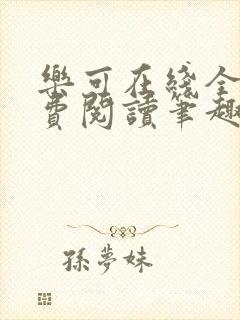 樂可在綫全
費閱讀筆趣
孫夢妹